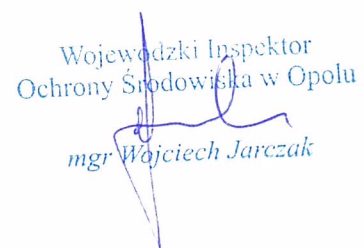 Wojewódzki Inspektor
Ochrony Środowiska w Opolu
mgr Wojciech Jarczak